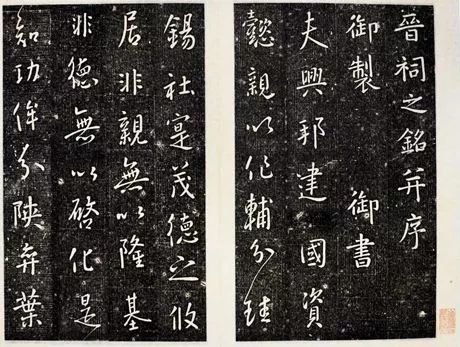 晉祠之銘并序
御製 御書
夫興邦建國資
懿親以作輔分珪
錫社寔茂德之攸
居非親無以隆基
非德無以啓化是
知功侔分陝弈葉